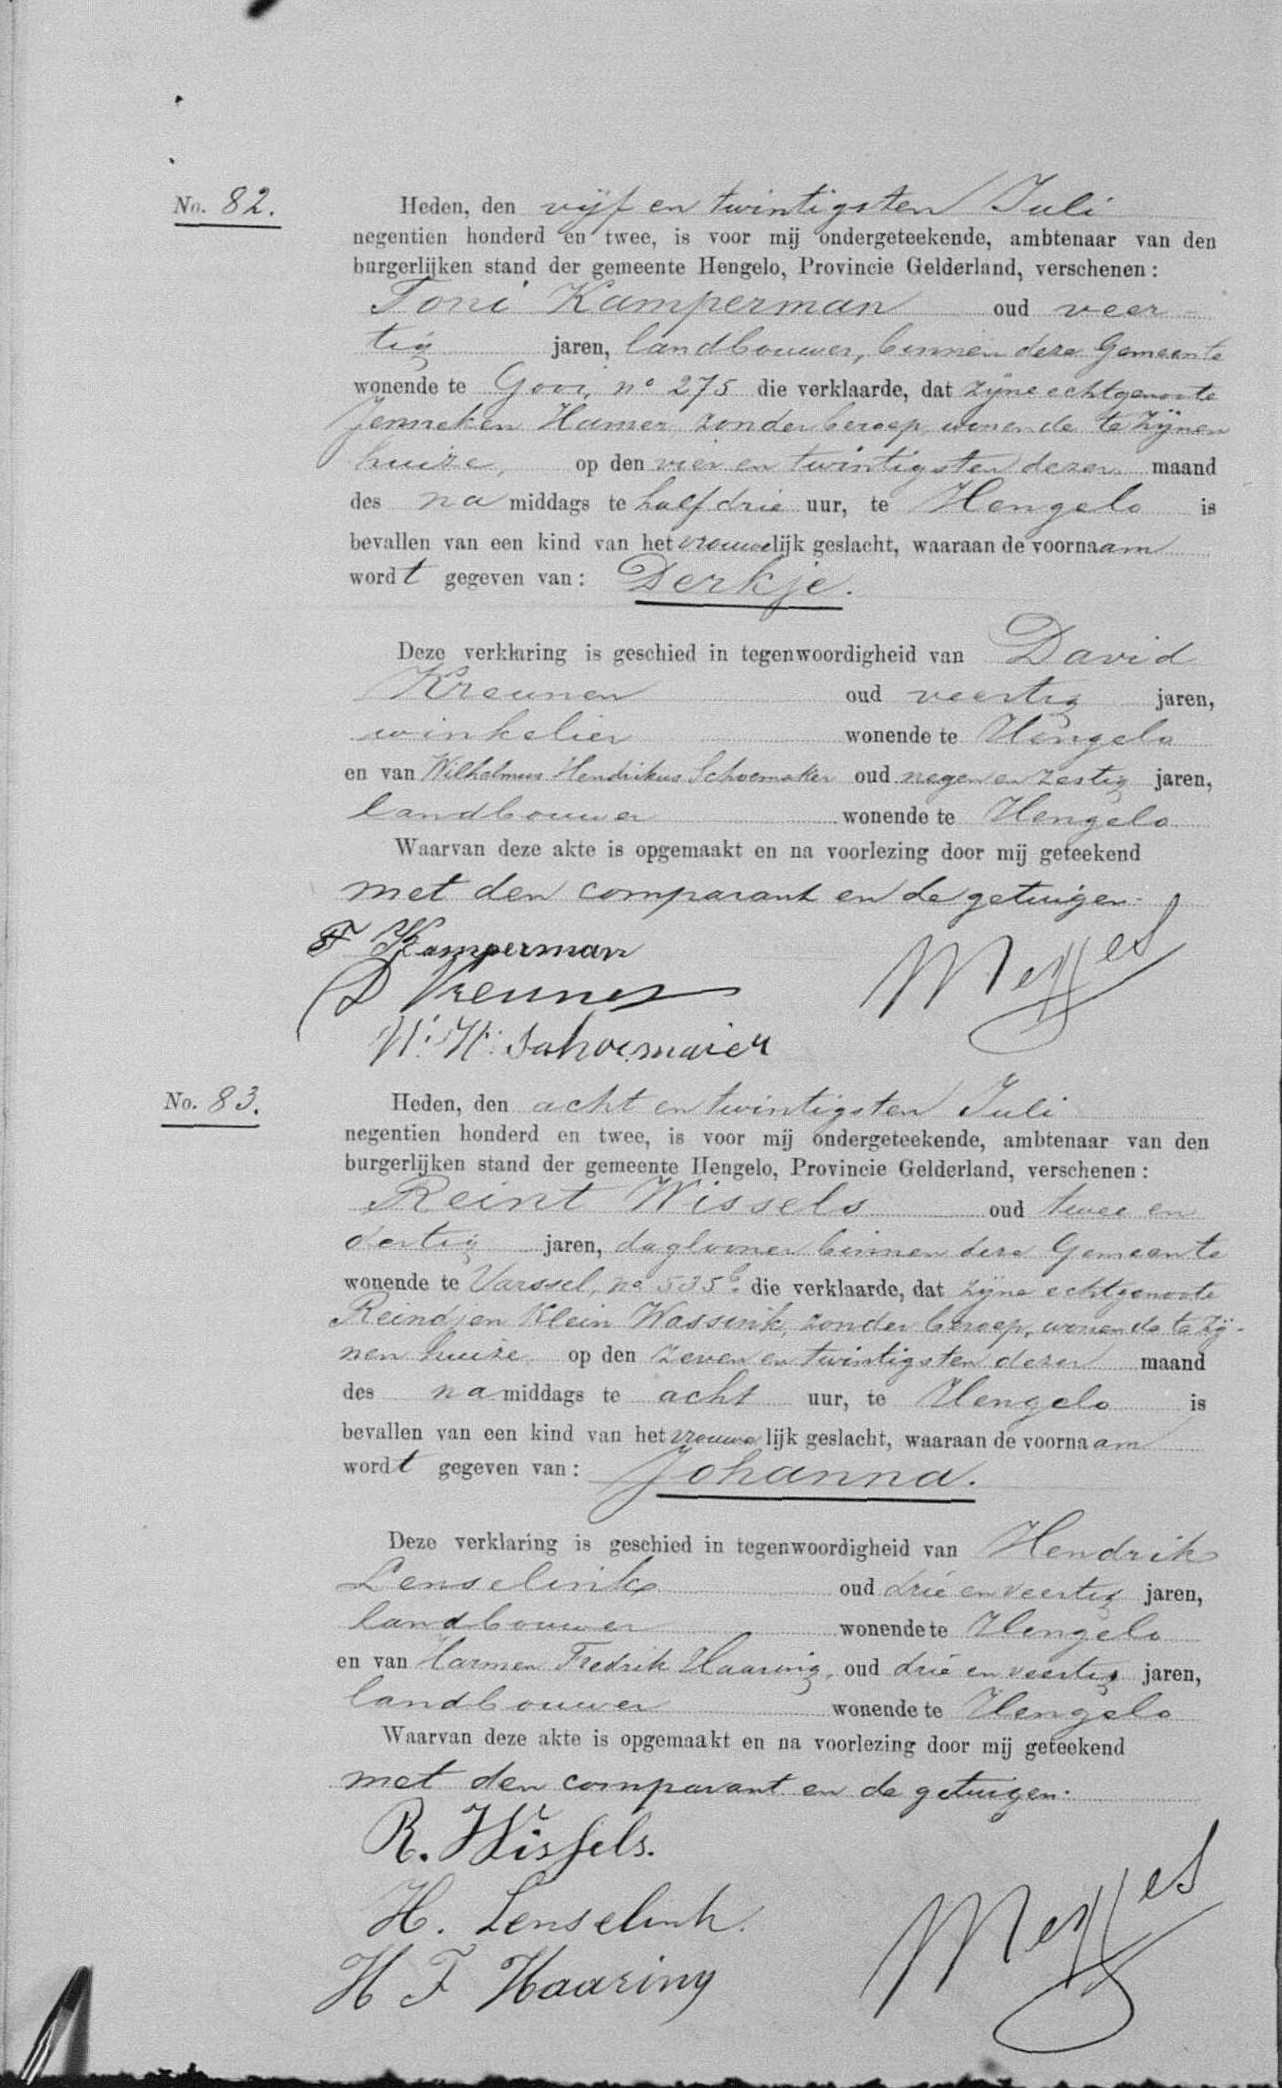 No. 82.
Heden, den vijf en twintigsten Juli
negentien honderd en twee, is voor mij ondergeteekende, ambtenaar van den
burgerlijken stand der gemeente Hengelo, Provincie Gelderland, verschenen:
Toni Kamperman oud veer-
tig jaren, landbouwer, binnen deze Gemeente
wonende te Gooi, no 275 die verklaarde, dat zijne echtgenoote
Jenneken Hamer zonder beroep, wonende te zijnen
huize, op den vier en twintigsten dezer maand
des na middags te half drie uur, te Hengelo is
bevallen van een kind van het vrouwelijk geslacht, waaraan de voornaam
wordt gegeven van: Derkje.
Deze verklaring is geschied in tegenwoordigheid van David
Kreunen oud veertig jaren,
winkelier wonende te Hengelo
en van Wilhelmus Hendrikus Schoemaker oud negen en zestig jaren,
landbouwer wonende te Hengelo
Waarvan deze akte is opgemaakt en na voorlezing door mij geteekend
met den comparant en de getuigen.
T Kamperman
D Kreunen
W. H. Schoemaker
No. 83.
Heden, den acht en twintigsten Juli
negentien honderd en twee, is voor mij ondergeteekende, ambtenaar van den
burgerlijken stand der gemeente Hengelo, Provincie Gelderland, verschenen:
Reint Wissels oud twee en
dertig jaren, daglooner binnen deze Gemeente
wonende te Varssel, no 535b. die verklaarde, dat zijne echtgenoote
Reindjen Klein Wassink, zonder beroep, wonende te zij-
nen huize op den zeven en twintigsten dezer maand
des namiddags te acht uur, te Hengelo is
bevallen van een kind van het vrouwelijk geslacht, waaraan de voornaam
wordt gegeven van: Johanna.
Deze verklaring is geschied in tegenwoordigheid van Hendrik
Lenselink oud drie en veertig jaren,
landbouwer wonende te Hengelo
en van Harmen Fredrik Haaring, oud drie en veertig jaren,
landbouwer wonende te Hengelo
Waarvan deze akte is opgemaakt en na voorlezing door mij geteekend
met den comparant en de getuigen.
R. Wissels.
H. Lenselink.
H F Haaring